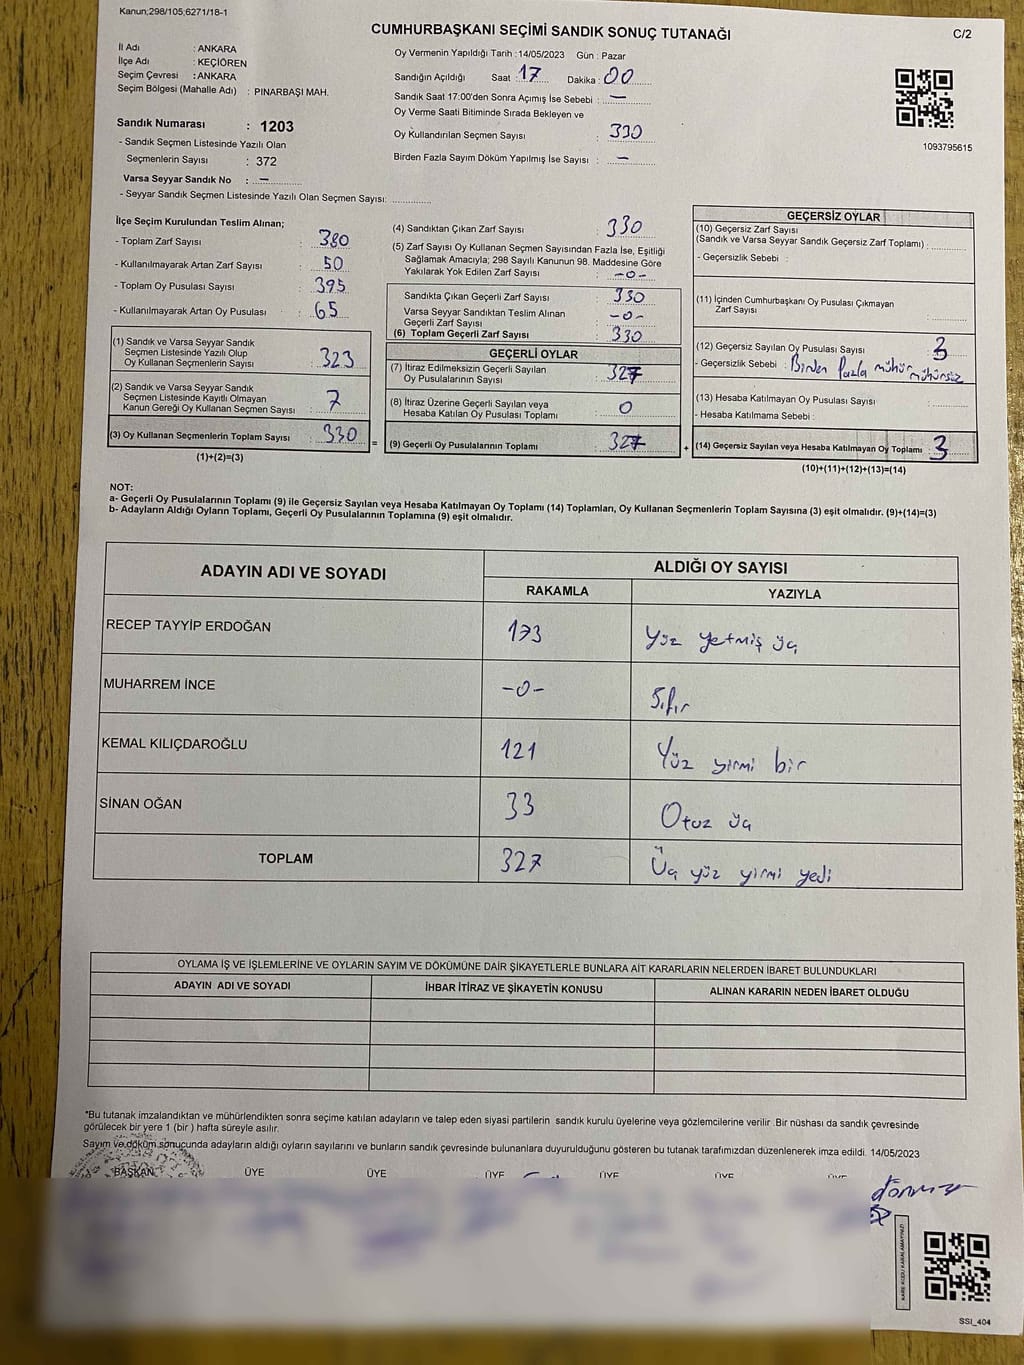 Kanun;298/105;6271/18-1
CUMHURBAŞKANI SEÇİMİ SANDIK SONUÇ TUTANAĞI
C/2
İl Adı : ANKARA
İlçe Adı : KEÇİÖREN
Seçim Çevresi : ANKARA
Seçim Bölgesi (Mahalle Adı) : PINARBAŞI MAH.
Sandık Numarası : 1203
- Sandık Seçmen Listesinde Yazılı Olan
Seçmenlerin Sayısı : 372
Varsa Seyyar Sandık No : —
- Seyyar Sandık Seçmen Listesinde Yazılı Olan Seçmen Sayısı:
Oy Vermenin Yapıldığı Tarih :14/05/2023 Gün : Pazar
Sandığın Açıldığı Saat : 17 Dakika : 00
Sandık Saat 17:00'den Sonra Açımış İse Sebebi : —
Oy Verme Saati Bitiminde Sırada Bekleyen ve
Oy Kullandırılan Seçmen Sayısı : 330
Birden Fazla Sayım Döküm Yapılmış İse Sayısı : —
1093795615
İlçe Seçim Kurulundan Teslim Alınan;
- Toplam Zarf Sayısı : 380
- Kullanılmayarak Artan Zarf Sayısı : 50
- Toplam Oy Pusulası Sayısı : 395
- Kullanılmayarak Artan Oy Pusulası : 65
(1) Sandık ve Varsa Seyyar Sandık
Seçmen Listesinde Yazılı Olup
Oy Kullanan Seçmenlerin Sayısı : 323
(2) Sandık ve Varsa Seyyar Sandık
Seçmen Listesinde Kayıtlı Olmayan
Kanun Gereği Oy Kullanan Seçmen Sayısı : 7
(3) Oy Kullanan Seçmenlerin Toplam Sayısı : 330
(1)+(2)=(3)
=
(4) Sandıktan Çıkan Zarf Sayısı : 330
(5) Zarf Sayısı Oy Kullanan Seçmen Sayısından Fazla İse, Eşitliği
Sağlamak Amacıyla; 298 Sayılı Kanunun 98. Maddesine Göre
Yakılarak Yok Edilen Zarf Sayısı : -0-
Sandıkta Çıkan Geçerli Zarf Sayısı : 330
Varsa Seyyar Sandıktan Teslim Alınan
Geçerli Zarf Sayısı : -0-
(6) Toplam Geçerli Zarf Sayısı : 330
GEÇERLİ OYLAR
(7) İtiraz Edilmeksizin Geçerli Sayılan
Oy Pusulalarının Sayısı : 327
(8) İtiraz Üzerine Geçerli Sayılan veya
Hesaba Katılan Oy Pusulası Toplamı : 0
(9) Geçerli Oy Pusulalarının Toplamı : 327
+
GEÇERSİZ OYLAR
(10) Geçersiz Zarf Sayısı
(Sandık ve Varsa Seyyar Sandık Geçersiz Zarf Toplamı) :
- Geçersizlik Sebebi :
(11) İçinden Cumhurbaşkanı Oy Pusulası Çıkmayan
Zarf Sayısı :
(12) Geçersiz Sayılan Oy Pusulası Sayısı : 3
- Geçersizlik Sebebi : Birden fazla mühür mühürsüz
(13) Hesaba Katılmayan Oy Pusulası Sayısı :
- Hesaba Katılmama Sebebi :
(14) Geçersiz Sayılan veya Hesaba Katılmayan Oy Toplamı : 3
(10)+(11)+(12)+(13)=(14)
NOT:
a- Geçerli Oy Pusulalarının Toplamı (9) ile Geçersiz Sayılan veya Hesaba Katılmayan Oy Toplamı (14) Toplamları, Oy Kullanan Seçmenlerin Toplam Sayısına (3) eşit olmalıdır. (9)+(14)=(3)
b- Adayların Aldığı Oyların Toplamı, Geçerli Oy Pusulalarının Toplamına (9) eşit olmalıdır.
ADAYIN ADI VE SOYADI
ALDIĞI OY SAYISI
RAKAMLA YAZIYLA
RECEP TAYYİP ERDOĞAN 173 Yüz yetmiş üç
MUHARREM İNCE -0- Sıfır
KEMAL KILIÇDAROĞLU 121 Yüz yirmi bir
SİNAN OĞAN 33 Otuz üç
TOPLAM 327 Üç yüz yirmi yedi
OYLAMA İŞ VE İŞLEMLERİNE VE OYLARIN SAYIM VE DÖKÜMÜNE DAİR ŞİKAYETLERLE BUNLARA AİT KARARLARIN NELERDEN İBARET BULUNDUKLARI
ADAYIN ADI VE SOYADI İHBAR İTİRAZ VE ŞİKAYETİN KONUSU ALINAN KARARIN NEDEN İBARET OLDUĞU
*Bu tutanak imzalandıktan ve mühürlendikten sonra seçime katılan adayların ve talep eden siyasi partilerin sandık kurulu üyelerine veya gözlemcilerine verilir .Bir nüshası da sandık çevresinde
görülecek bir yere 1 (bir ) hafta süreyle asılır.
Sayım ve döküm sonucunda adayların aldığı oyların sayılarını ve bunların sandık çevresinde bulunanlara duyurulduğunu gösteren bu tutanak tarafımızdan düzenlenerek imza edildi. 14/05/2023
BAŞKAN ÜYE ÜYE ÜYE ÜYE ÜYE ÜYE
KARE KODU KARALAMAYINIZ!
SSI_404